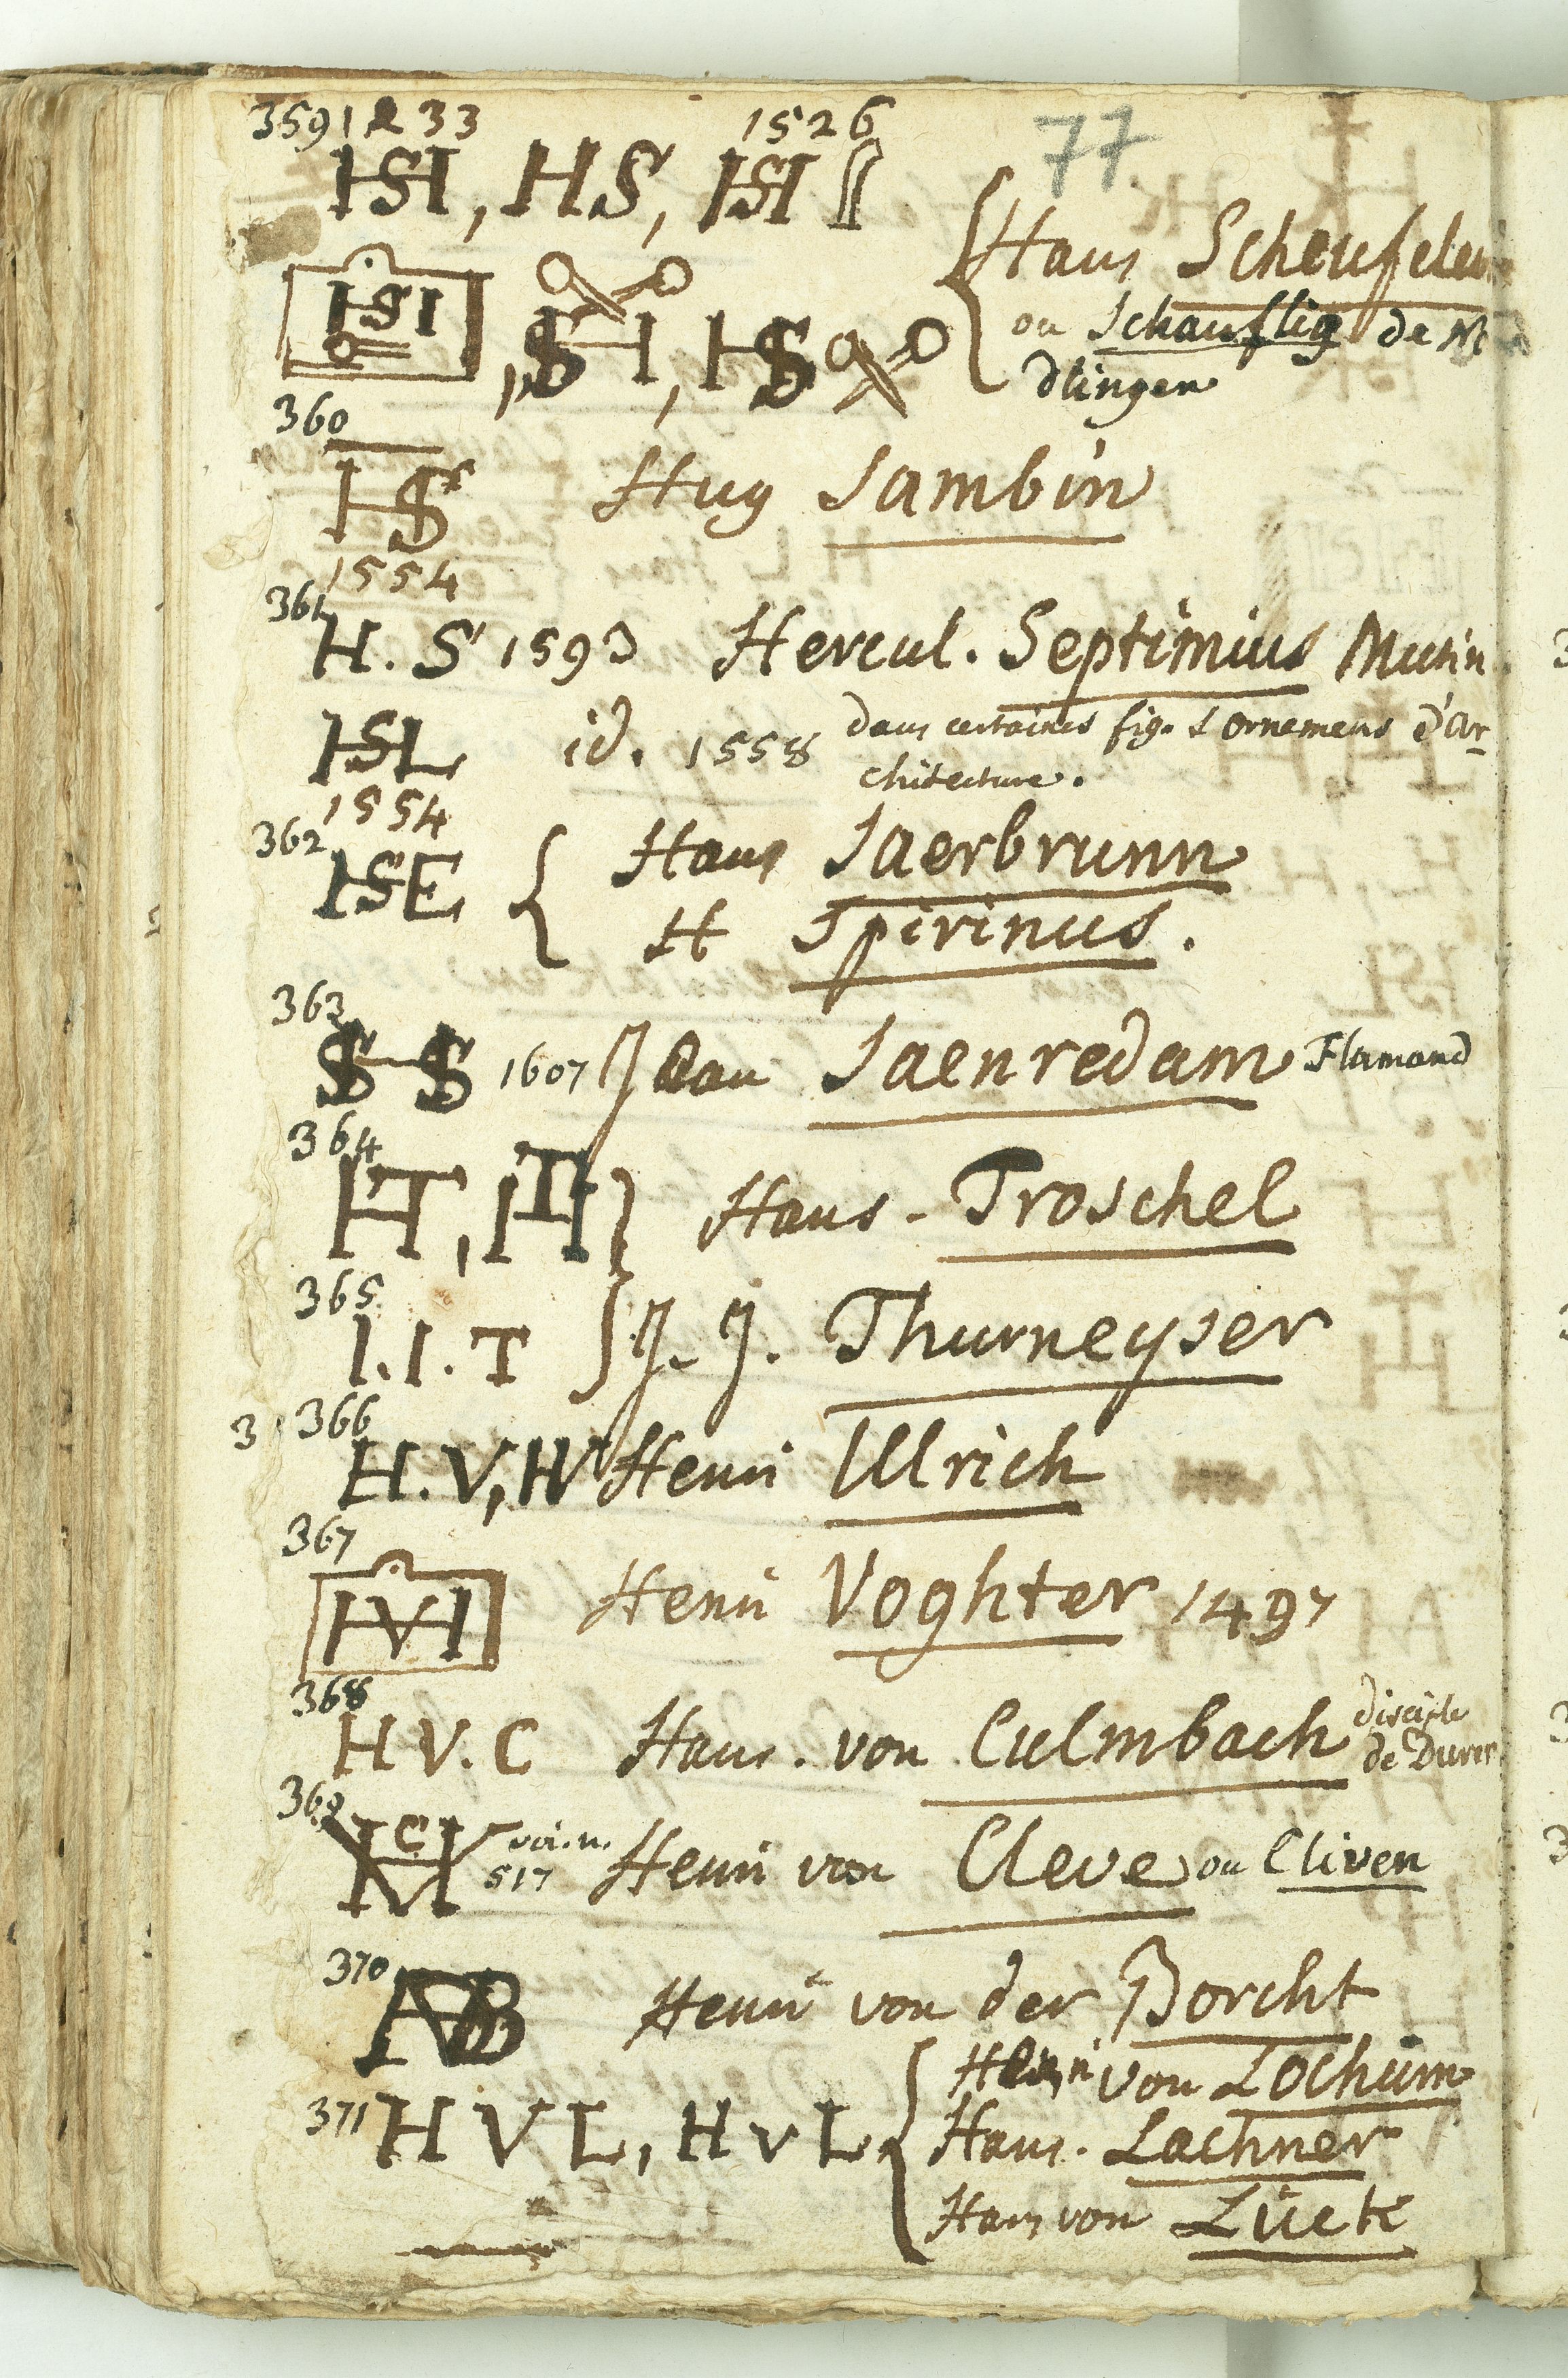 359 1233 1526 77
HSI, HS, HSI
Hans Scheufelein
HSI, SH, HS ou Schauflig de N
dlingen
360
HS Hug Sambin
1554
361
H. S 1593 Hercul. Septimius Mutin
HSL id. 1558 dans certaines fig. d'Ornemens d'ar-
chitecture.
1554
362
HSE Hans Saerbrunn
H Spirinus.
363
SS 1607 Jean Saenredam Flamand
364
HT, HT Hans - Troschel
365
I. I. T J. J. Thurneyser
3 366
H. V, HV Henri Ullrich
367
HVH Henri Voghter 1497
368
H V. C Hans. von Culmbach disciple
de Durer
369
HVC voi. n. 517 Henri von Cleve ou Cliven
370
HVB Henri von der Borcht
Henri von Lochum
371 H V L, H v L Hans. Lachner
Hans von Lück